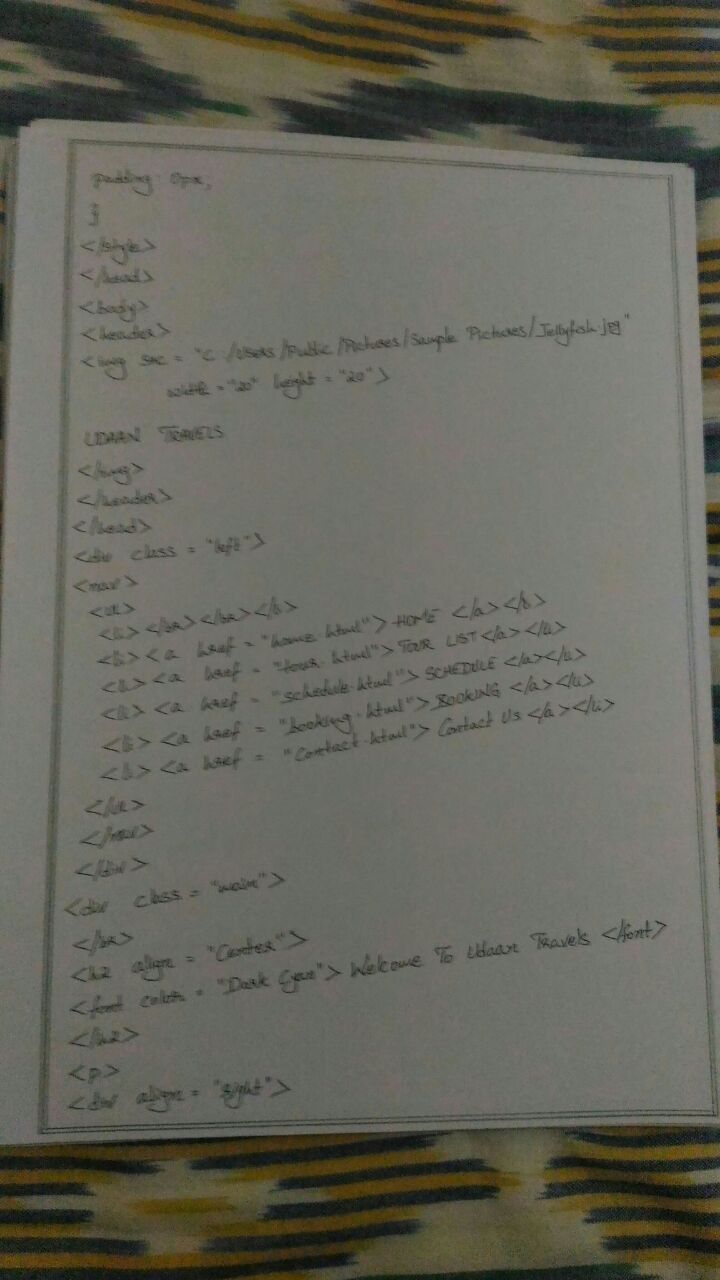 padding: 0px;
}
</style>
</head>
<body>
<header>
<img src = "C:/Users/Public/Pictures/Sample Pictures/Jellyfish.jpg"
width = "20" height = "20">
UDAAN TRAVELS
</img>
</header>
</head>
<div class = "left">
<nav>
<ul>
<li> </br></br></li>
<li><a href = "home.html"> HOME </a></li>
<li><a href = "tour.html"> TOUR LIST </a></li>
<li><a href = "schedule.html"> SCHEDULE </a></li>
<li><a href = "booking.html"> BOOKING </a></li>
<li><a href = "Contact.html"> Contact Us </a></li>
</ul>
</nav>
</div>
<div class = "main">
</br>
<h2 align = "Center">
<font color = "Dark Cyan"> Welcome To Udaan Travels </font>
</h2>
<p>
<div align = "Right">